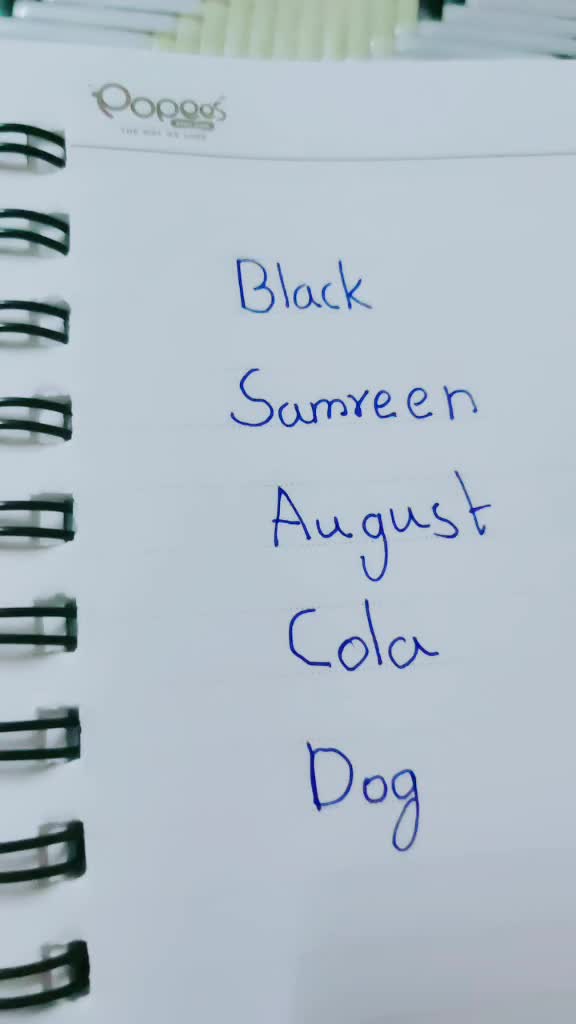 Popees
THE WAY WE CARE
Black
Samreen
August
Cola
Dog